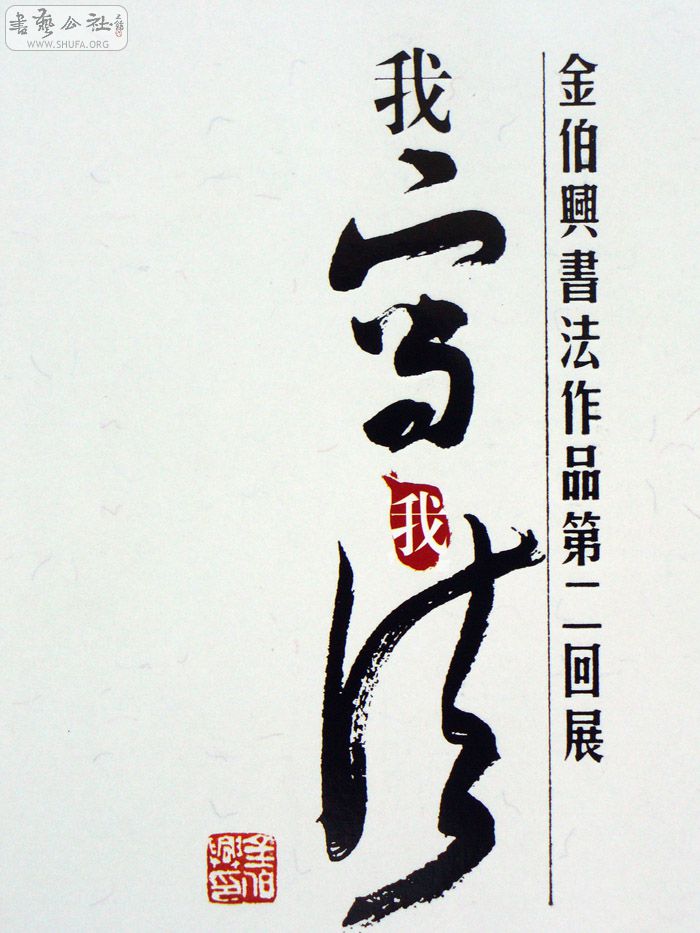 書藝公社
WWW.SHUFA.ORG
金伯興書法作品第二回展
我写我
金伯興印